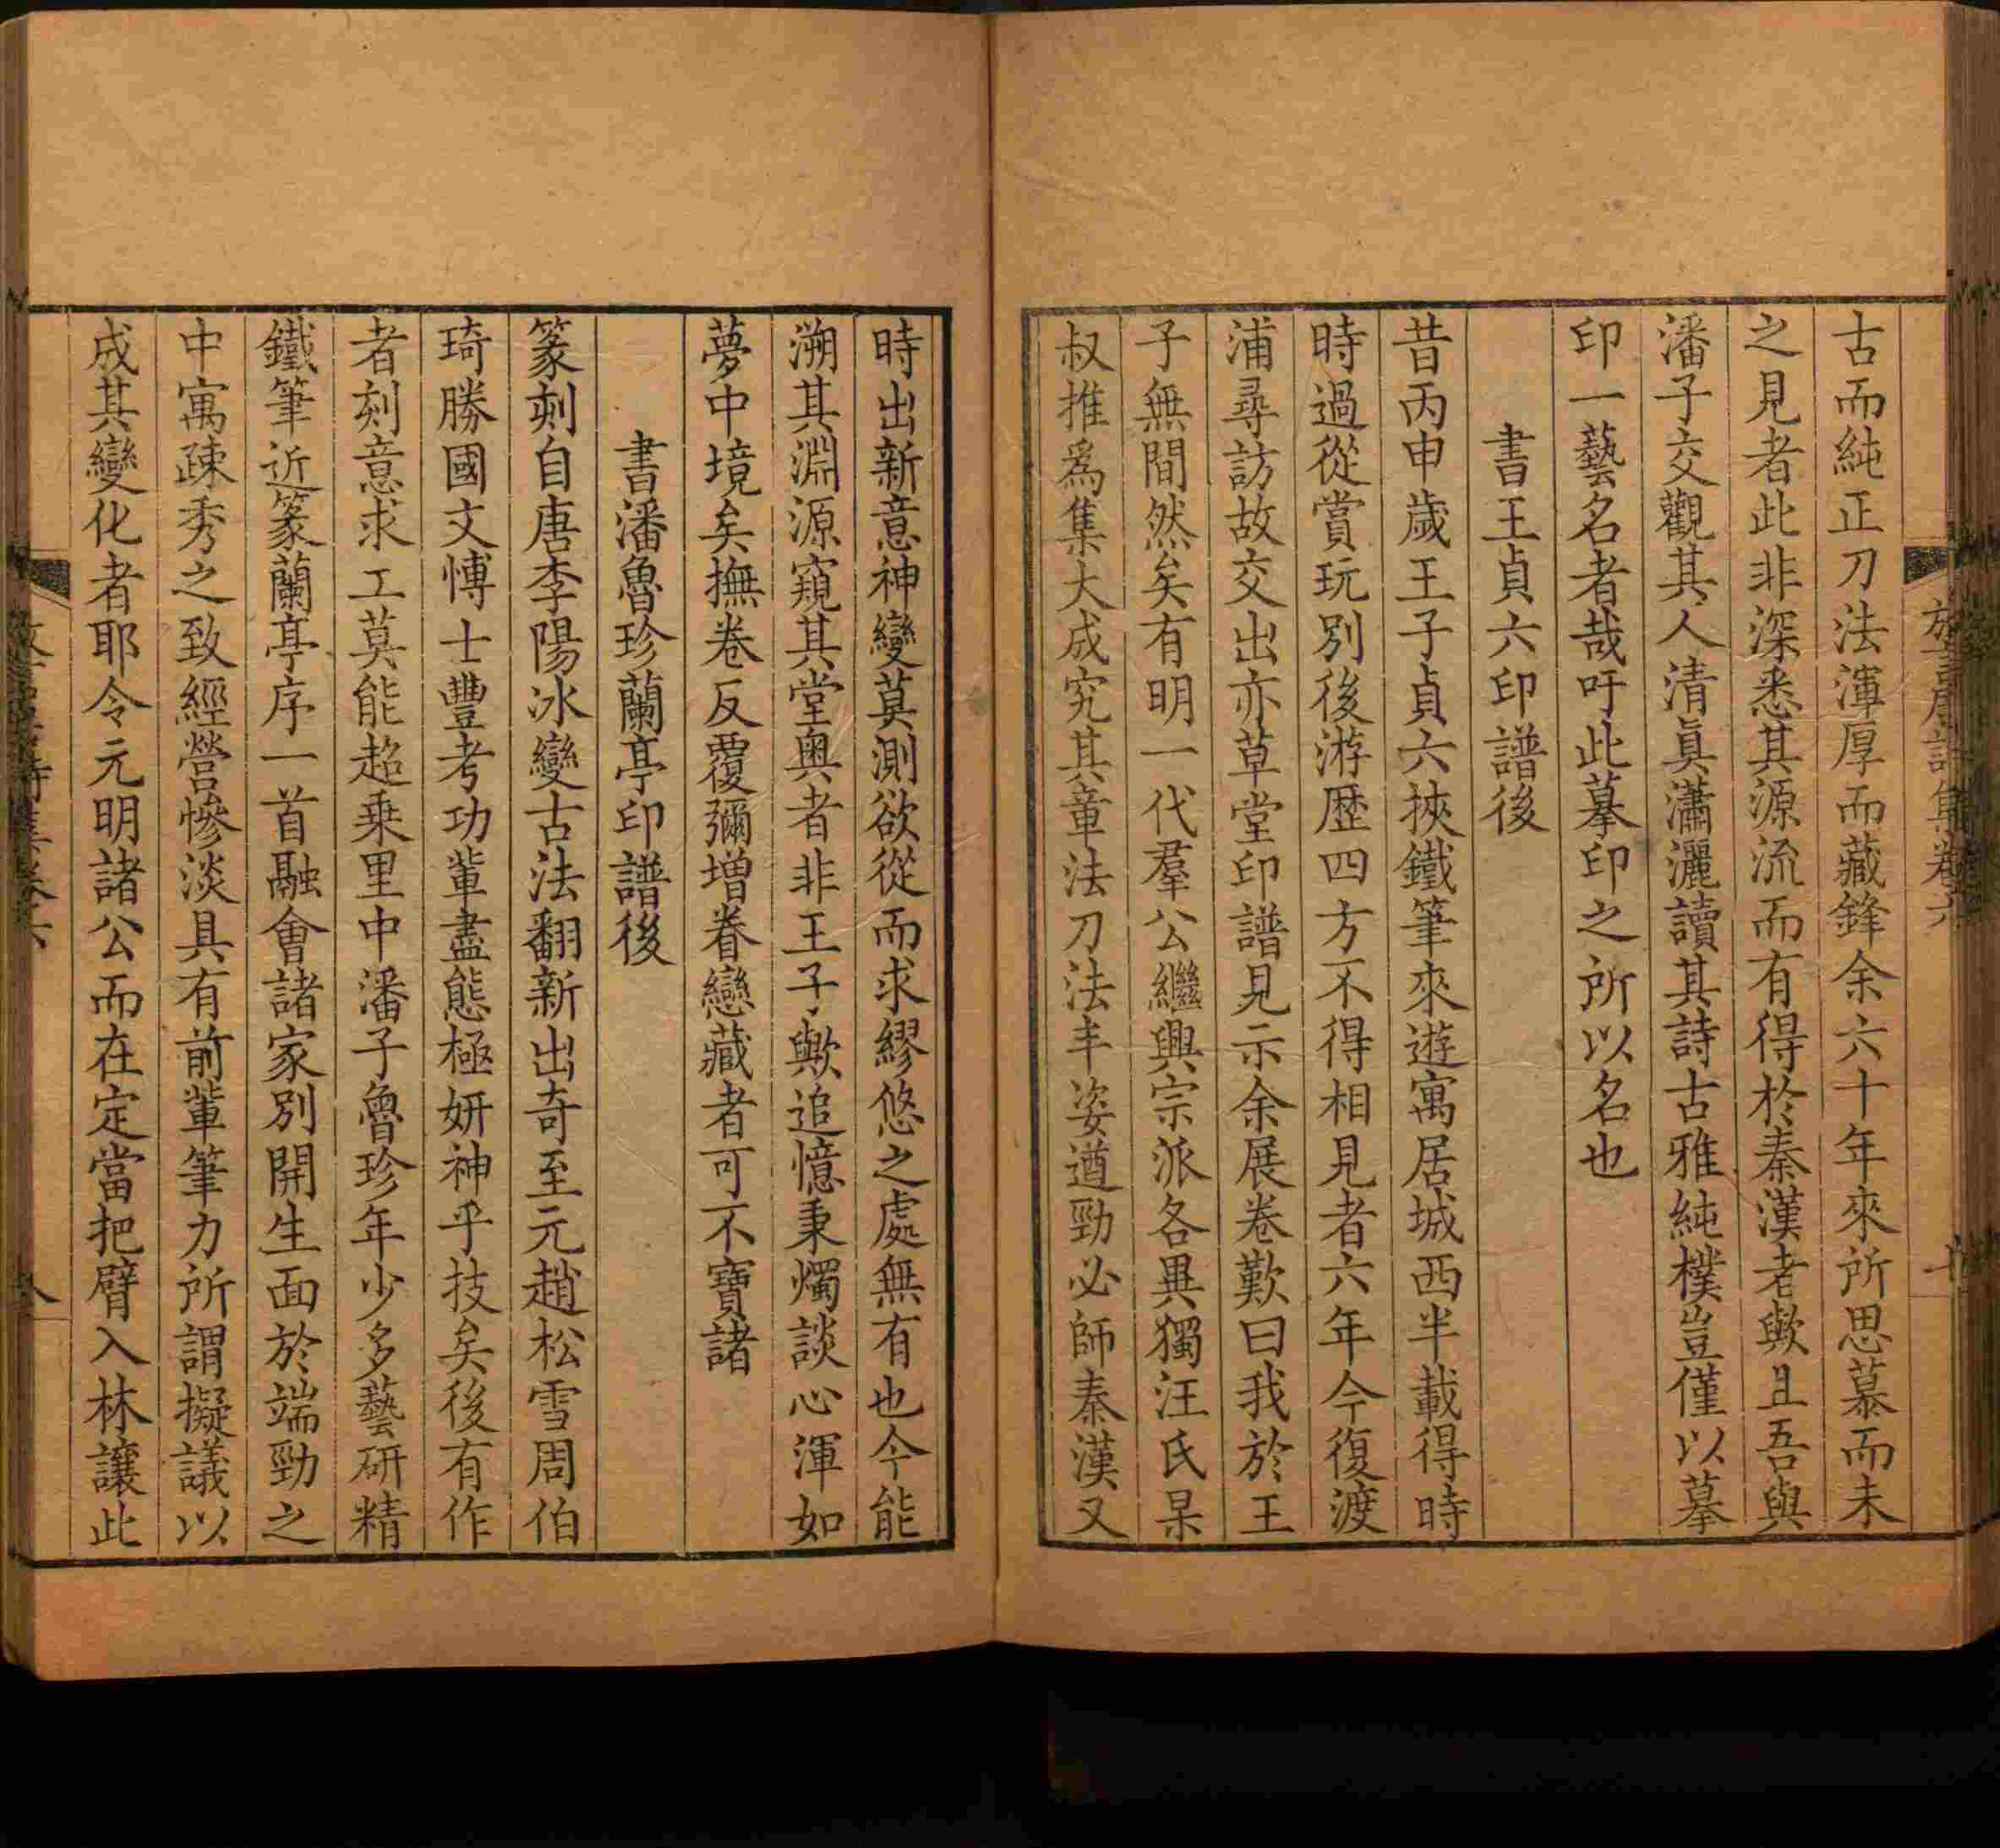 古而純正刀法渾厚而藏鋒余六十年來所思慕而未
之見者此非深悉其源流而有得於秦漢者歟且吾與
潘子交觀其人清眞瀟灑讀其詩古雅純樸豈僅以摹
印一藝名者哉吁此摹印之所以名也
書王貞六印譜後
昔丙申歲王子貞六挾鐵筆來遊寓居城西半載得時
時過從賞玩別後游歷四方不得相見者六年今復渡
浦尋訪故交出亦草堂印譜見示余展卷歎曰我於王
子無間然矣有明一代羣公繼興宗派各異獨汪氏杲
叔推爲集大成究其章法刀法丰姿遒勁必師秦漢又
時出新意神變莫測欲從而求繆悠之處無有也今能
溯其淵源窺其堂奧者非王子歟追憶秉燭談心渾如
夢中境矣撫卷反覆彌增眷戀藏者可不寶諸
書潘魯珍蘭亭印譜後
篆刻自唐李陽冰變古法翻新出奇至元趙松雪周伯
琦勝國文博士豐考功輩盡態極妍神乎技矣後有作
者刻意求工莫能超乘里中潘子魯珍年少多藝研精
鐵筆近篆蘭亭序一首融會諸家別開生面於端勁之
中寓疎秀之致經營慘淡具有前輩筆力所謂擬議以
成其變化者耶令元明諸公而在定當把臂入林讓此